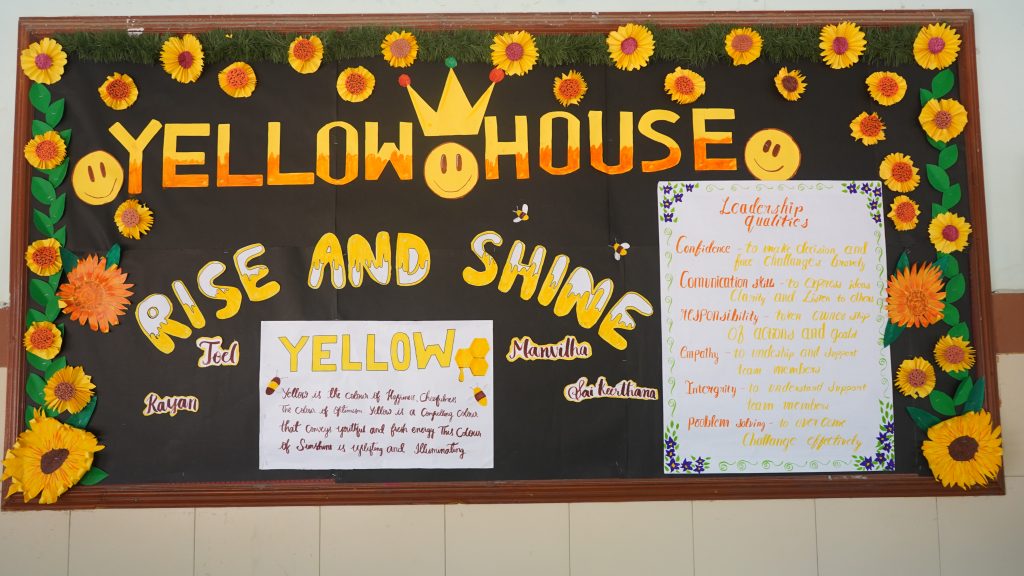 YELLOW HOUSE
RISE AND SHINE
Joel
Kayan
Manvitha
Sai Keerthana
YELLOW
Yellow is the colour of Happiness, Cheerfulness
The colour of Optimism Yellow is a Compelling colour
that conveys youthful and fresh energy This Colour
of Sunshine is uplifting and Illuminating
Leadership
qualities
Confidence - to make decision and
face challenges bravely
Communication skill - to express ideas
Clarity and Listen to others
Responsibility - taken ownership
of actions and goals
Empathy - to undership and support
team members
Intergrity - to understand support
team member
Problem solving - to over come
Challenge effectively